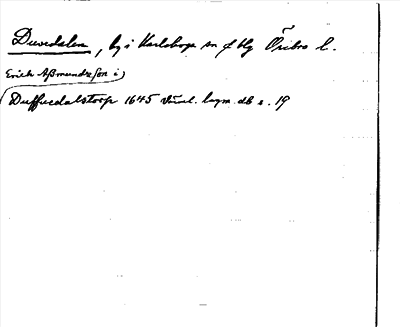 Duvedalen, by i Karlskoga sn o bg Örebro l.
Erich Aßmundzson i
Duffuedalstorp 1645 Värml. lagm. db s. 19